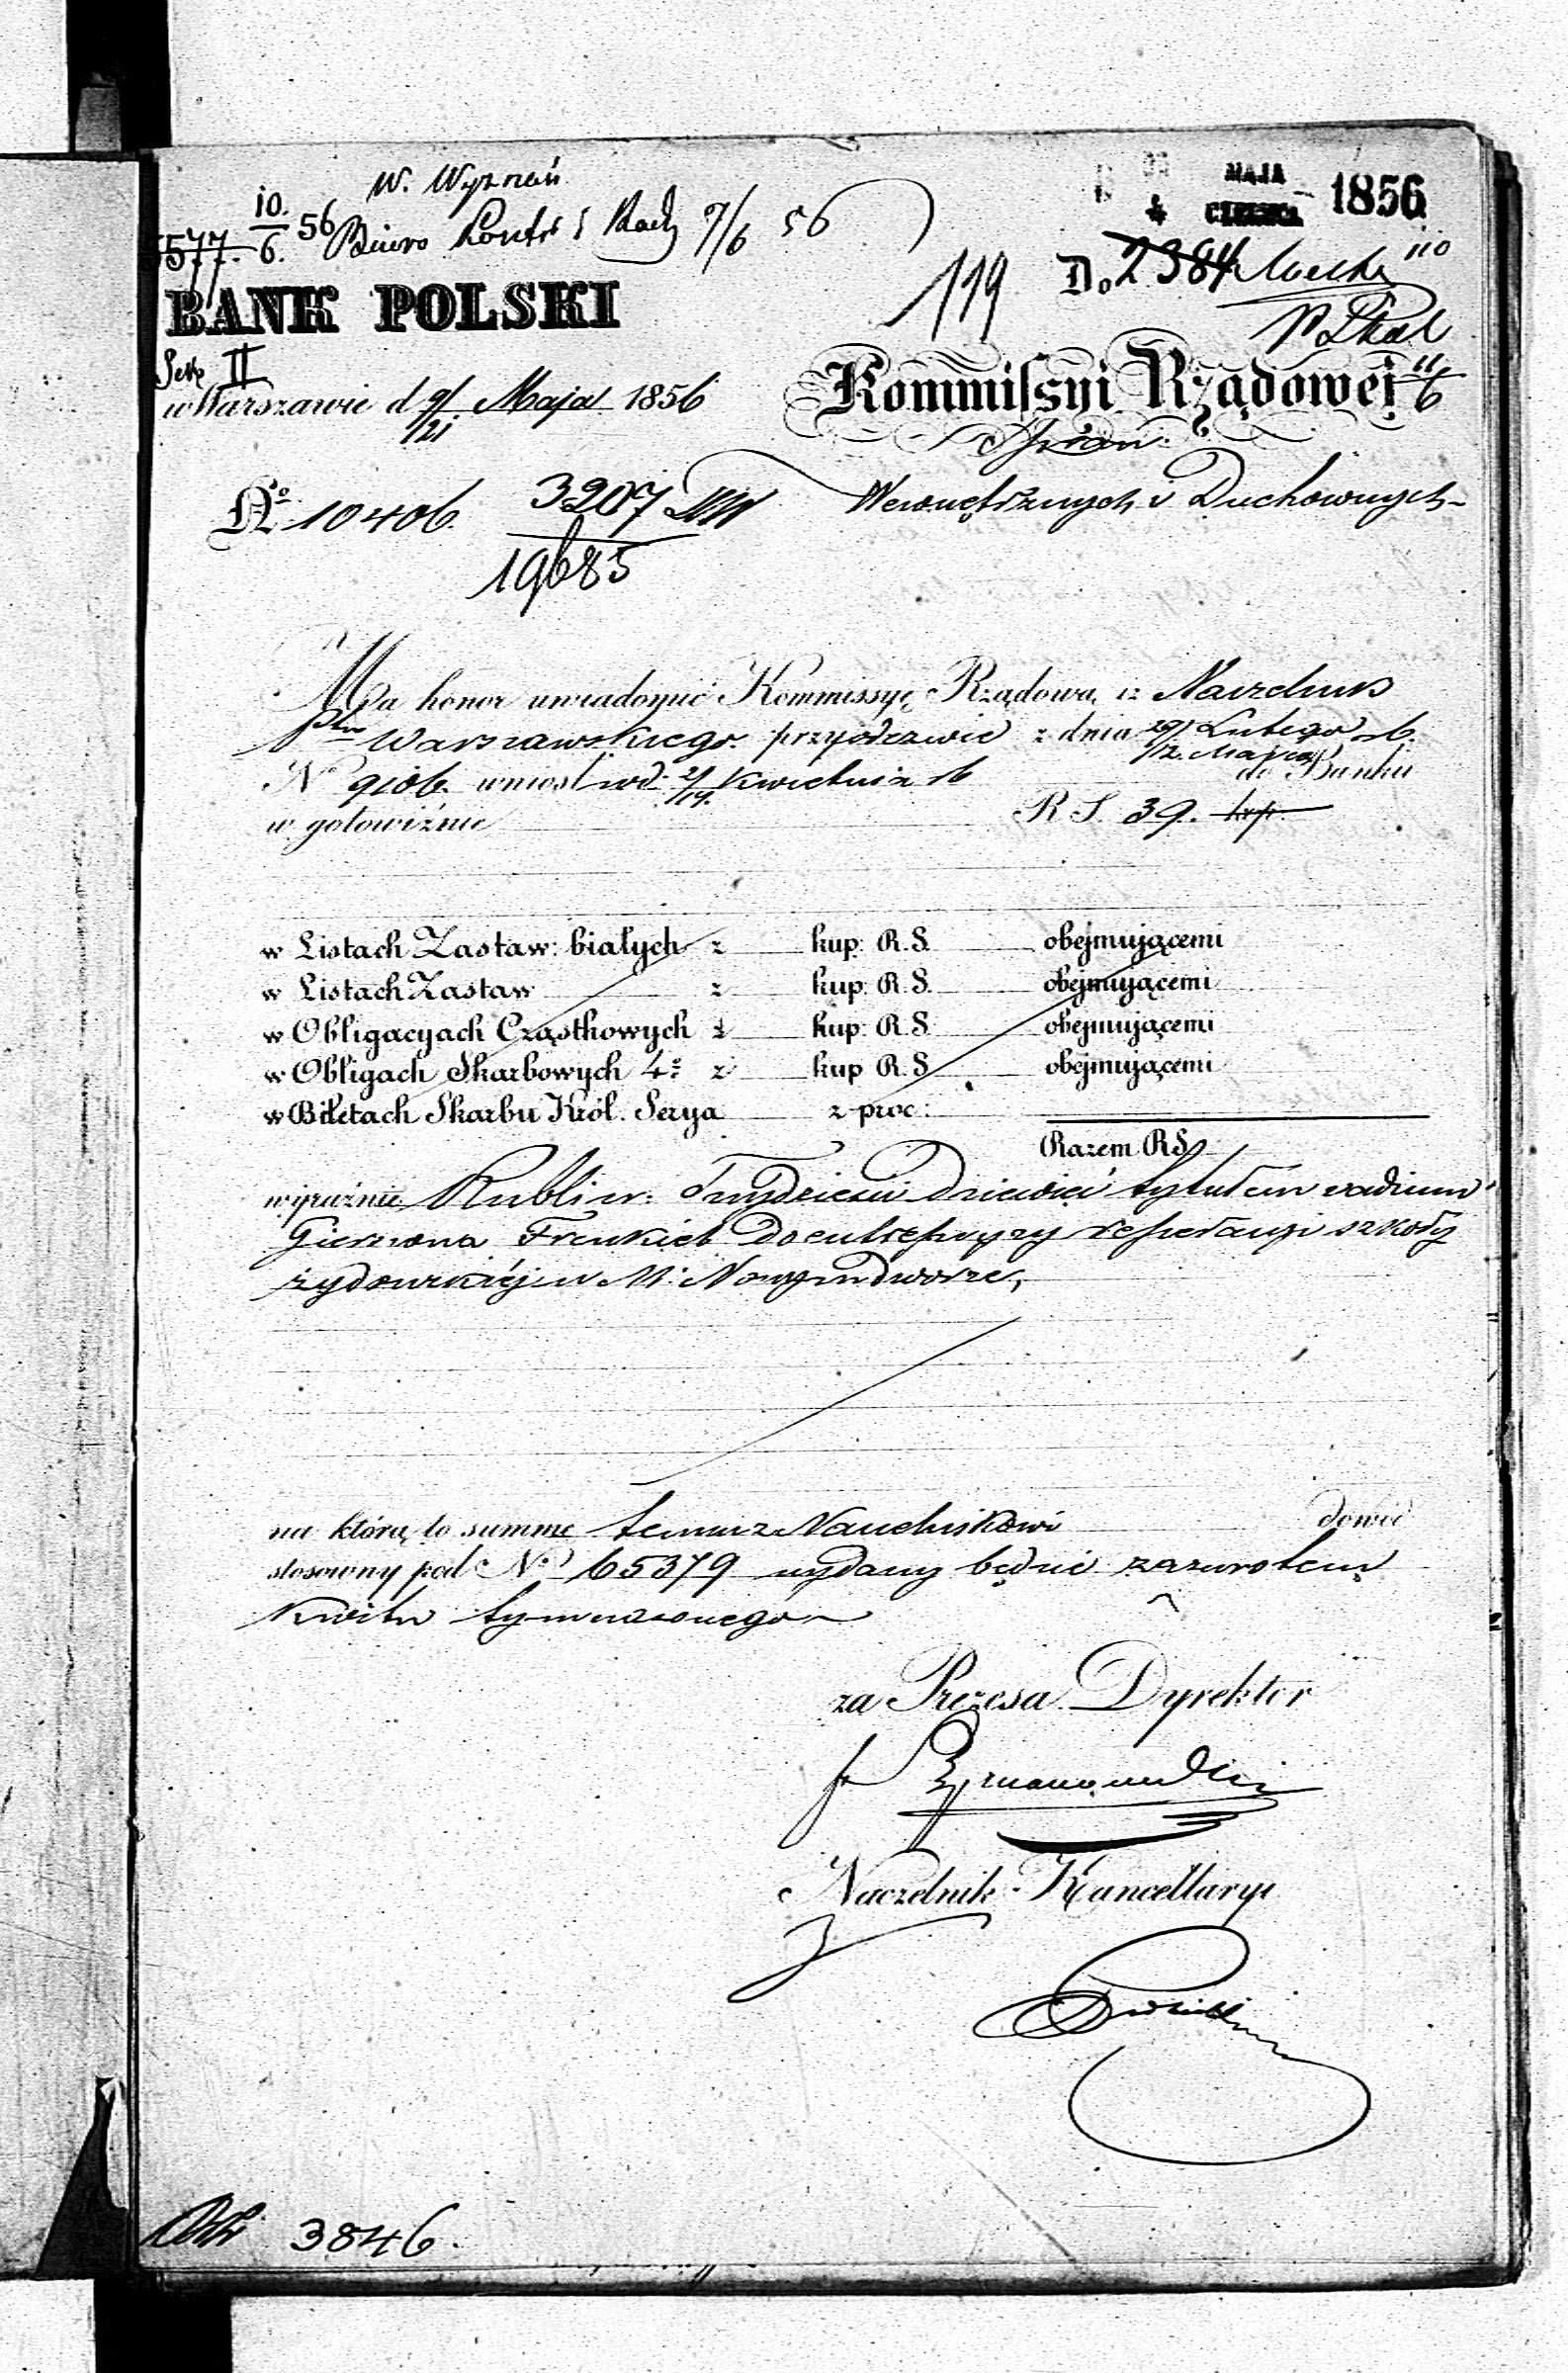 W. Wyznań
10/6. 56 Biuro Kontr i Rach 7/6 56
MAJA
4 CZERWCA 1856
5577.
119
Do 2384
110
BANK POLSKI
Sek II
w Warszawie d 9/21 Maja 1856
Kommissyi Rządowej 11/6
Spraw:
No 10406. 3207
19685
Wewnętrznych i Duchownych
Ma honor uwiadomić Kommissyę Rządową, iż Naczelnik
Ptu Warszawskiego. przy odezwie z dnia 29/12 Lutego/Marca r.b.
No 9106. wniósł wd. 2/14. Kwietnia r b do Banku
w gotowiźnie R S. 39. kop.
w Listach Zastaw: białych z kup: R.S. obejmującemi
w Listach Zastaw z kup: R.S. obejmującemi
w Obligacyach Cząstkowych z kup: R.S. obejmującemi
w Obligach Skarbowych 4% z kup R.S. obejmującemi
w Biletach Skarbu Król. Serya z proc:
Razem RS.
wyraźnie Rubli sr: Trzydzieści Dziewięć tytułem vadium
Gierszona Frenkiel Do entrepryzy reperacyi szkoły
żydowskiej w M: Nowymdworze,
na którą to summę temuż Naczelnikowi dowód
stosowny pod No 65379 wydany będzie za zwrotem
Kwitu tymczasowego
za Prezesa Dyrektor
Naczelnik Kancellaryi
3846.